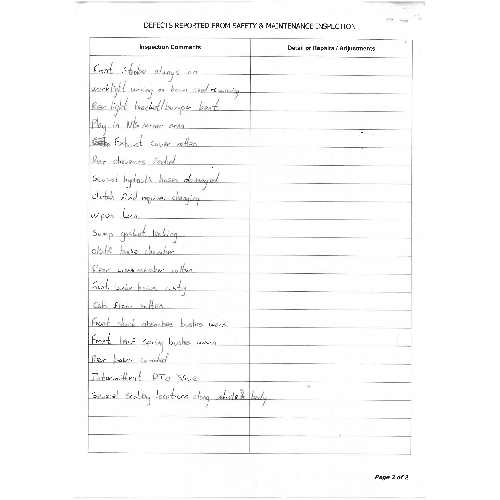 DEFECTS REPORTED FROM SAFETY & MAINTENANCE INSPECTION
Inspection Comments
Detail of Repairs / Adjustments
Front Strobe always on
worklight wiring on boom needs securing
Rear light bracket/bumper bent
Play in N/S mirror arm
Exhaust cover rotten
Rear chevrons faded
Several hydraulic hoses damaged
Clutch fluid requires changing
wipers
Sump gasket leaking
brake chamber
Rear rotten
Front brake rusty
Cab floor rotten
Front shock absorber bushes worn
Front leaf spring bushes worn
Rear corroded
Intermittent PTO issue
Several locations along vehicle & body
Page 2 of 2